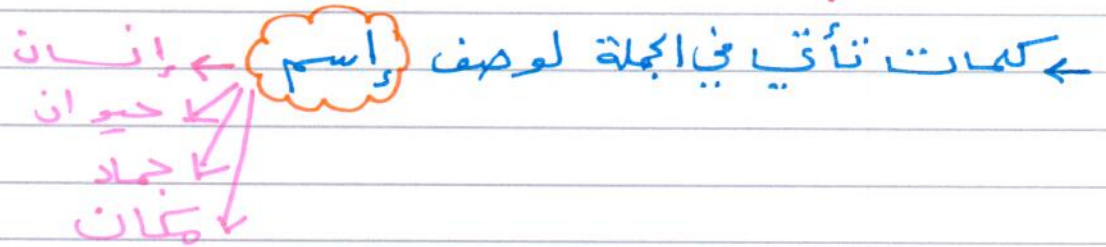 ← كلمات تأتي في الجملة لوصف إسم ← إنسان
حيوان
جماد
مكان